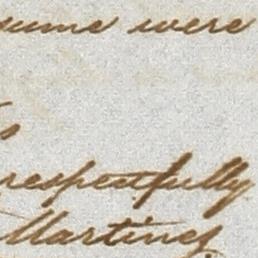 sume were
s
respectfully
Martinez